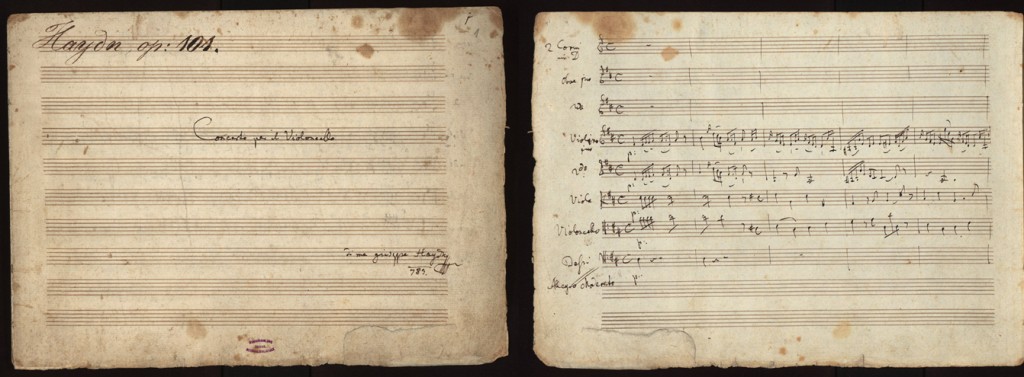 Haydn op: 101.
Concerto per il Violoncello
di me giuseppe Haydn
783.
2 Corni
in D
oboe pro
2do
Violino
pmo
2do
Viola
Violoncello
Bassi
Allegro Moderato